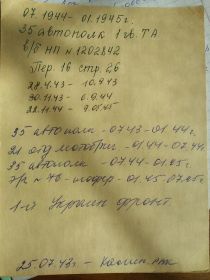 07.1944 - 01.1945г.
35 автополк 1 гв. ТА
в/б НП № 1202842
Пер. 16 стр. 26
28.4.43 - 10.9.43
30.11.43 - 6.9.44
22.11.44 - 9.05.45
35 автополк - 07.43 - 01.44г.
21 отд мотобр - 01.44 - 07.44.
35 автополк - 07.44 - 01.45г.
№ 48 - шофер - 01.45 - 07.45г.
1-й Украин фронт.
25.07.43г. - Калин. РВК